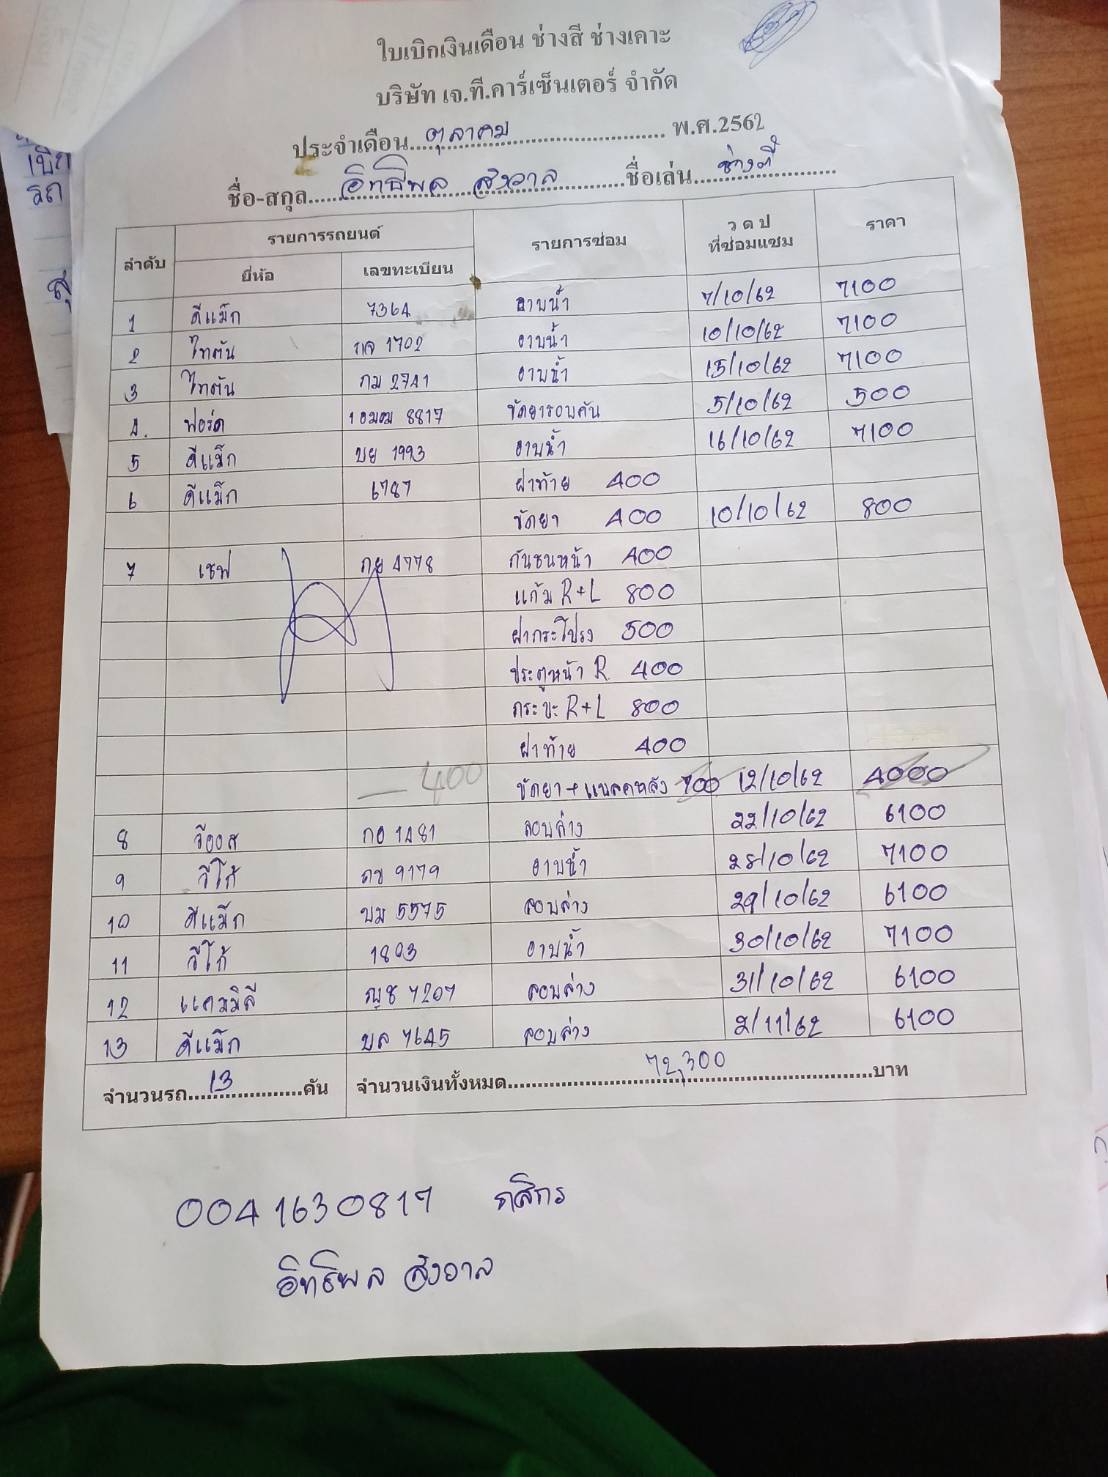 ใบเบิกเงินเดือน ช่างสี ช่างเคาะ
บริษัท เจ.ที.คาร์เซ็นเตอร์ จำกัด
ประจำเดือน ตุลาคม พ.ศ.2562
ชื่อ-สกุล อิทธิพล สังวาล ชื่อเล่น ช่างตี๋
ลำดับ รายการรถยนต์ รายการซ่อม ว ด ป ที่ซ่อมแซม ราคา
ยี่ห้อ เลขทะเบียน
1 ดีแม็ก 7364 อาบน้ำ 7/10/62 7100
2 ไทตัน 1702 อาบน้ำ 10/10/62 7100
3 ไทตัน กม 2741 อาบน้ำ 15/10/62 7100
4. ฟอร์ด 8817 ขัดยารอบคัน 5/10/62 500
5 ดีแม็ก บย 1993 อาบน้ำ 16/10/62 7100
6 ดีแม็ก 6787 ฝาท้าย 400
ขัดยา 400 10/10/62 800
7 เชฟ กย 4778 กันชนหน้า 400
แก้ม R+L 800
ฝากระโปรง 500
ประตูหน้า R 400
กระบะ R+L 800
ฝาท้าย 400
— 400 ขัดยา + แบลคหลัง 700 12/10/62 4000
8 วีออส กอ 1481 รอบล่าง 22/10/62 6100
9 วีโก้ ภข 9179 อาบน้ำ 28/10/62 7100
10 ดีแม็ก บม 5575 รอบล่าง 29/10/62 6100
11 วีโก้ 1803 อาบน้ำ 30/10/62 7100
12 แคมมิลี่ ญช 7207 รอบล่าง 31/10/62 6100
13 ดีแม็ก บล 7645 รอบล่าง 2/11/62 6100
จำนวนรถ 13 คัน จำนวนเงินทั้งหมด 72,300 บาท
0041630817 กสิกร
อิทธิพล สังวาล
เบิก
รถ